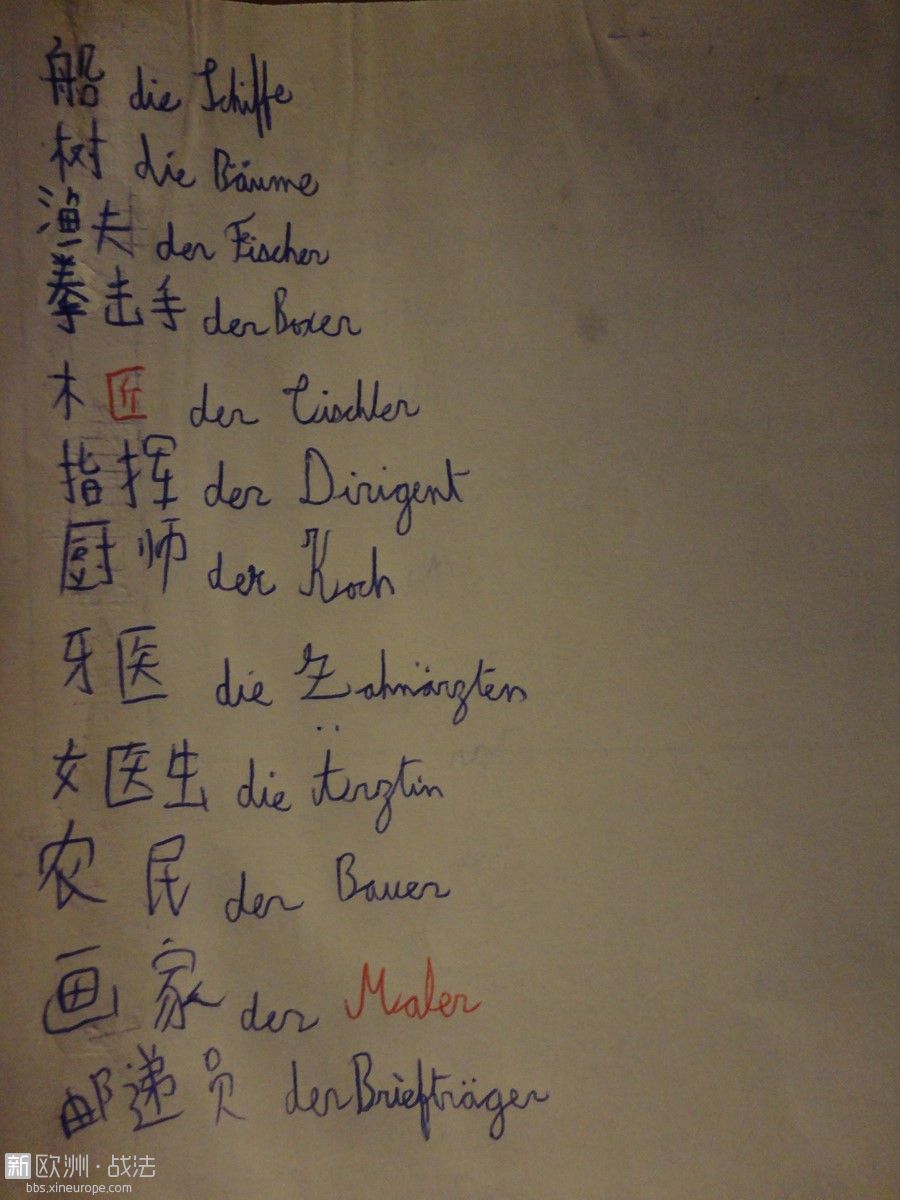 船 die Schiffe
树 die Bäume
渔夫 der Fischer
拳击手 der Boxer
木匠 der Tischler
指挥 der Dirigent
厨师 der Koch
牙医 die Zahnärzten
女医生 die Ärztin
农民 der Bauer
画家 der Maler
邮递员 der Briefträger
新欧洲·战法
bbs.xineurope.com